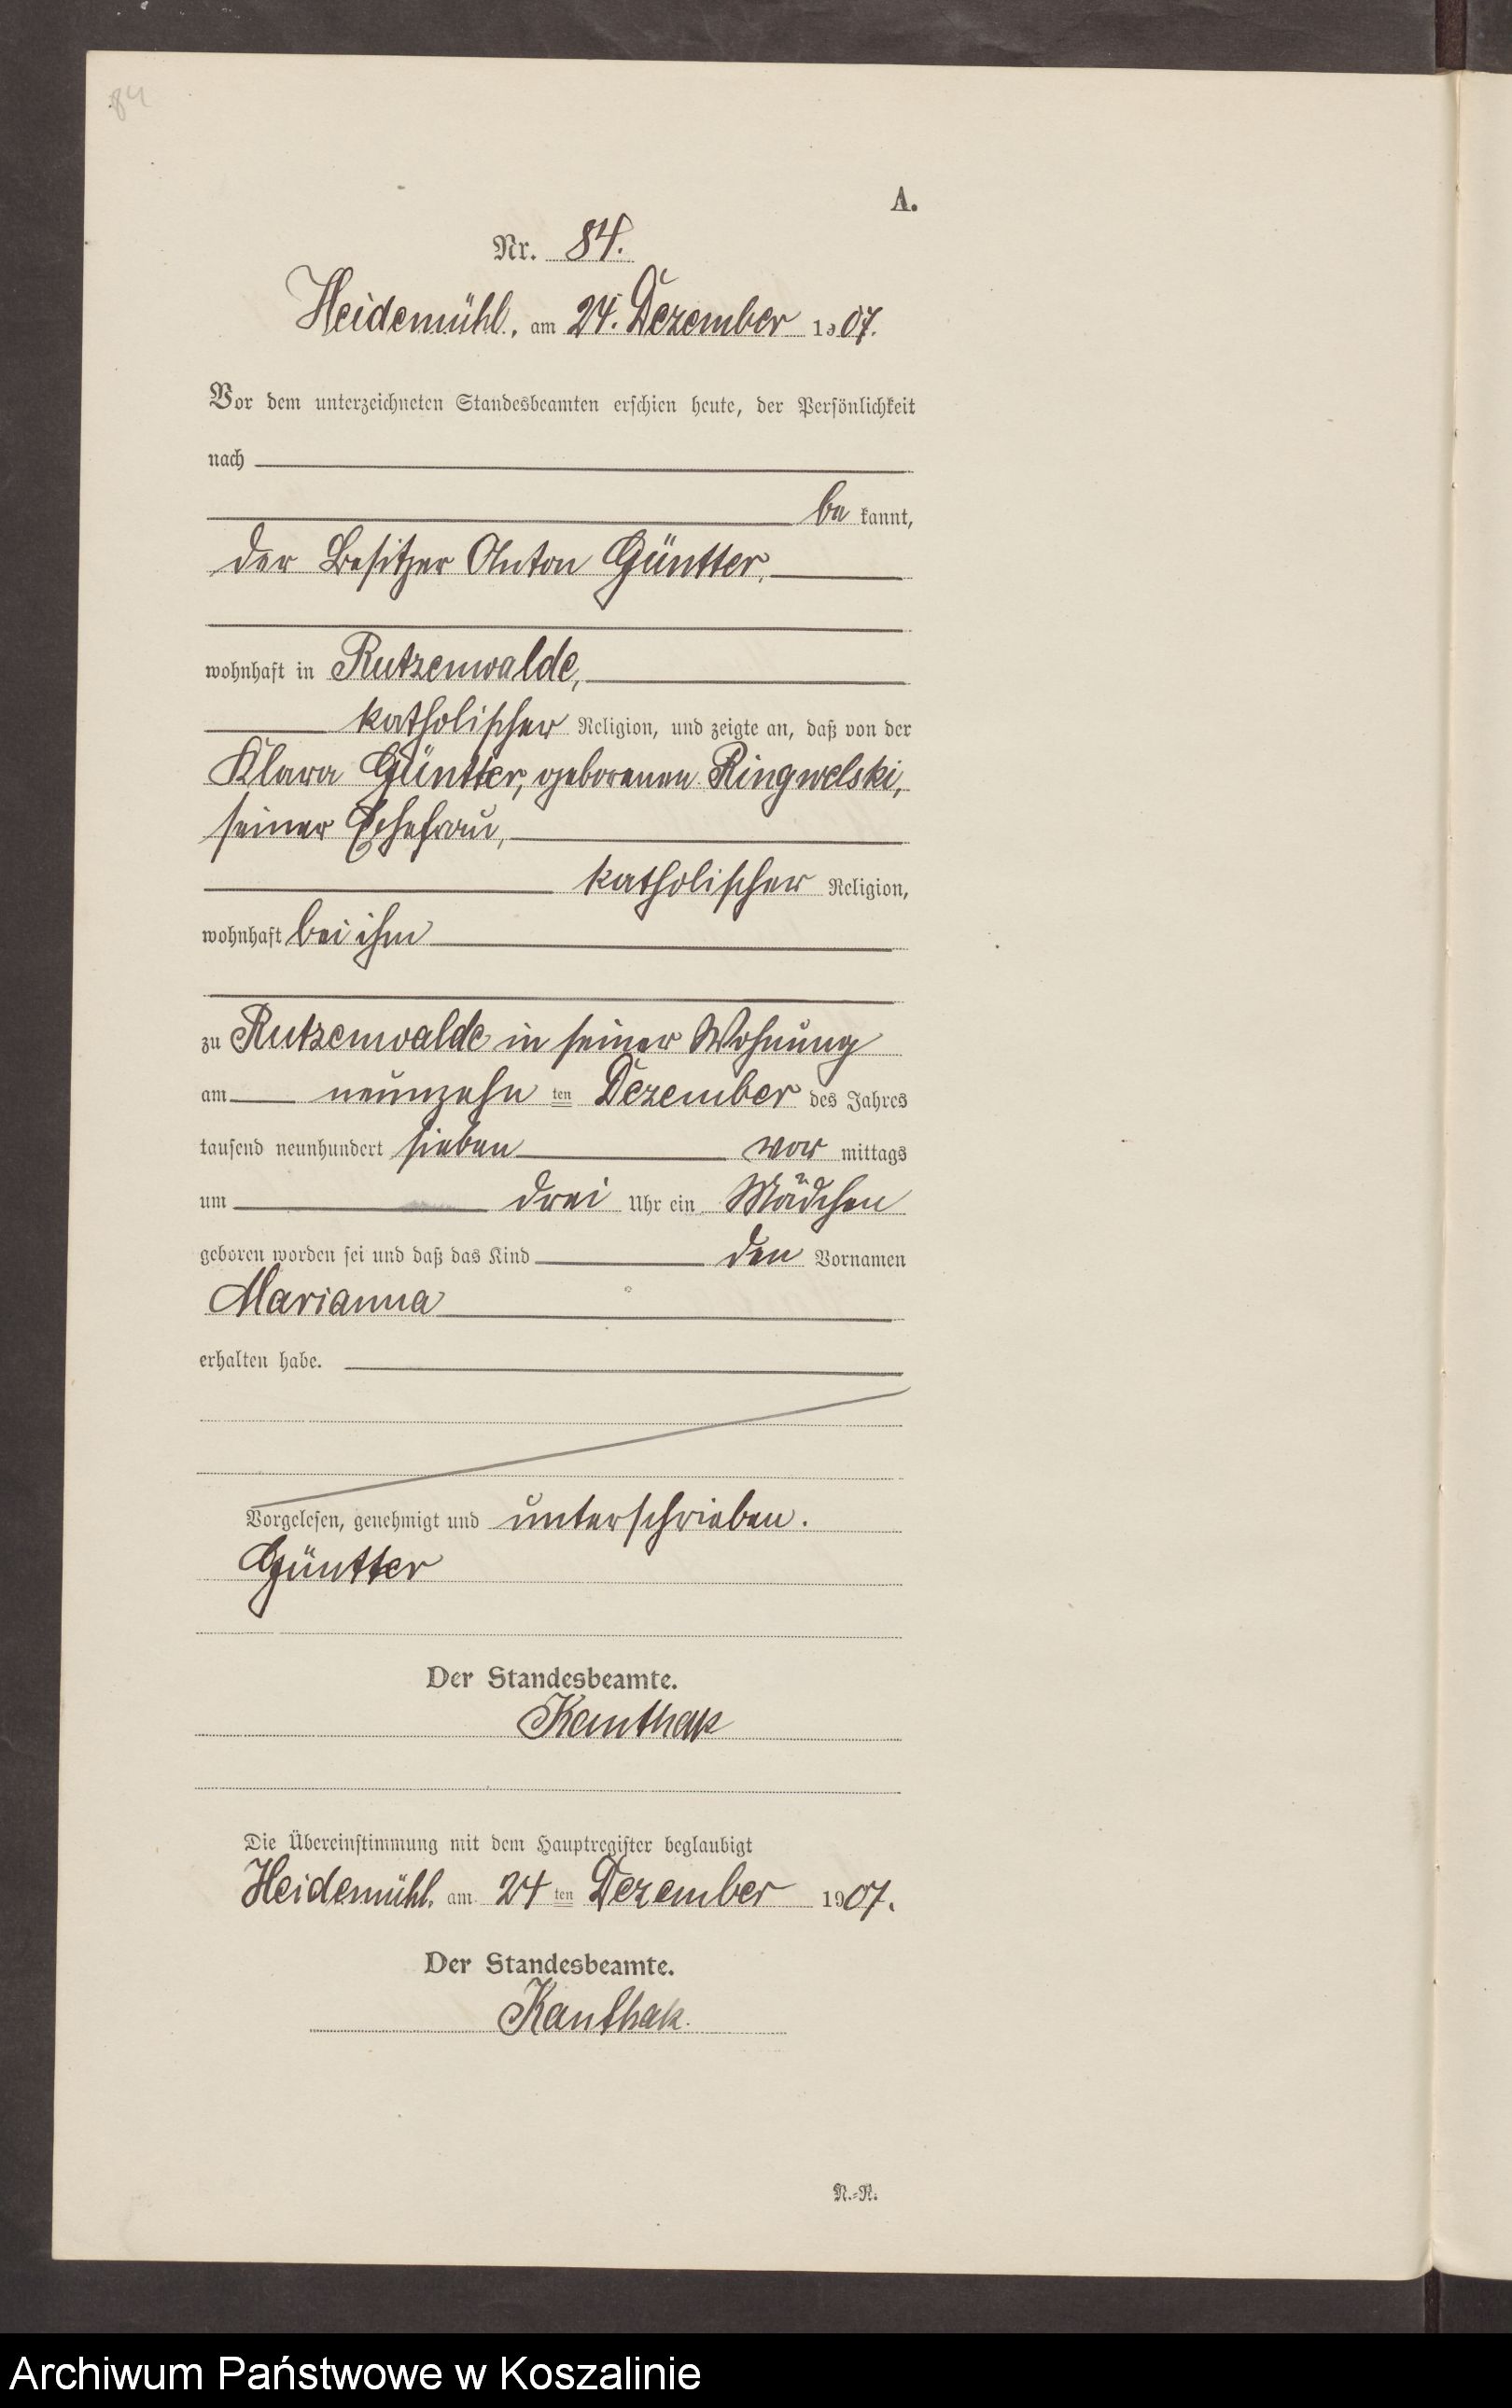 84
A.
Nr. 84.
Heidemühl, am 24. Dezember 1907.
Vor dem unterzeichneten Standesbeamten erschien heute, der Persönlichkeit
nach
be kannt,
der Besitzer Anton Güntter,
wohnhaft in Rutzenwalde,
katholischer Religion, und zeigte an, daß von der
Klara Güntter, geborenen Ringwelski,
seiner Ehefrau,
katholischer Religion,
wohnhaft bei ihm
zu Rutzenwalde in seiner Wohnung
am neunzehn ten Dezember des Jahres
tausend neunhundert sieben vor mittags
um drei Uhr ein Mädchen
geboren worden sei und daß das Kind den Vornamen
Marianna
erhalten habe.
Vorgelesen, genehmigt und unterschrieben.
Güntter
Der Standesbeamte.
Kanthak
Die Übereinstimmung mit dem Hauptregister beglaubigt
Heidemühl, am 24 ten Dezember 1907.
Der Standesbeamte.
Kanthak.
N.-R.
Archiwum Państwowe w Koszalinie